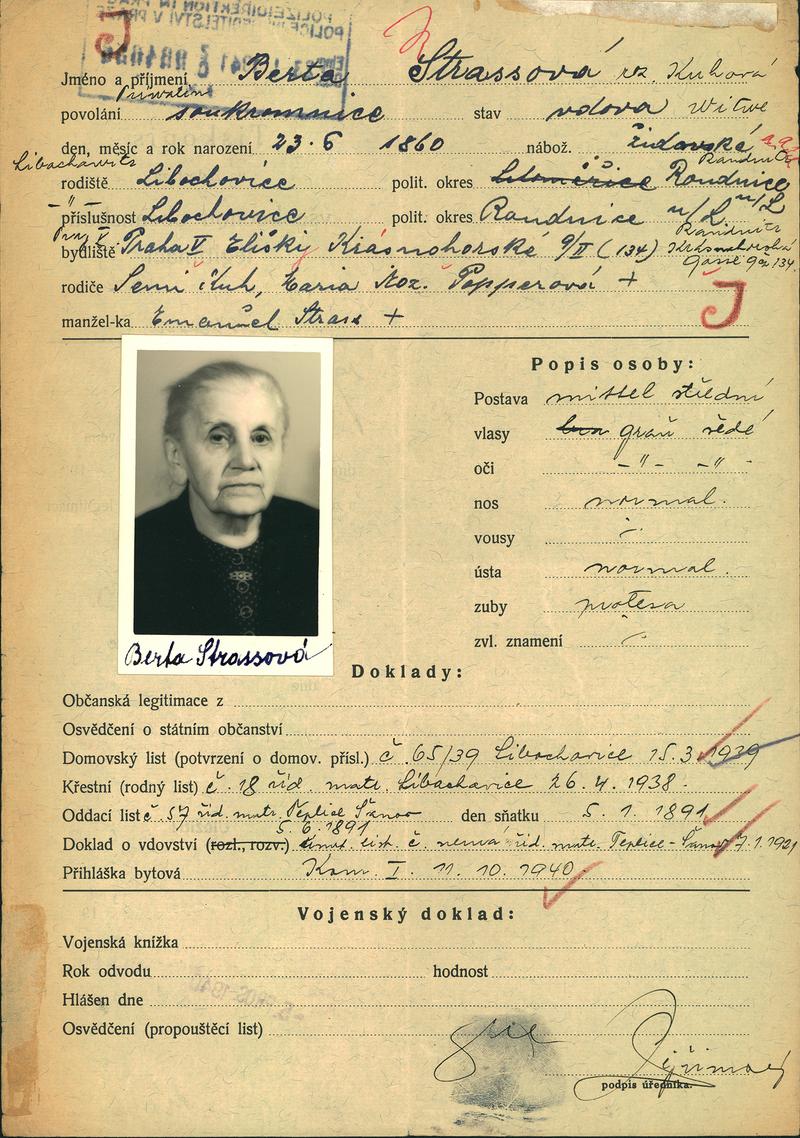 J
POLIZEIDIREKTION IN PRAG
POLICEJNÍ ŘEDITELSTVÍ V PRAZE
Jméno a příjmení Berta Strassová roz. Kuhová
Privatin
povolání soukromnice stav vdova Witwe
den, měsíc a rok narození 23. 6 1860 nábož. židovské
Libochowitz Raudnitz
rodiště Libochovice polit. okres Litoměřice Roudnice
-"- n/L
příslušnost Libochovice polit. okres Roudnice n/L
Prag V. Raudnitz
bydliště Praha V Elišky Krásnohorské 9/II (134) Krasnohorska
gasse 9 134.
rodiče Kuh, Popperová +
manžel-ka Emanuel Strass +
J
Popis osoby:
Postava mittel střední
vlasy grau šedé
oči -"- -"-
nos normal.
vousy
ústa normal.
zuby protesa
zvl. znamení
Berta Strassová
Doklady:
Občanská legitimace z
Osvědčení o státním občanství
Domovský list (potvrzení o domov. přísl.) č. 65/39 Libochovice 15. 3. 1939
Křestní (rodný list) č. 18 žid. matr. Libochovice 26. 4. 1938.
Oddací list č. 57 žid. matr. Teplice Šanov den sňatku 5. 1. 1891
5. 6. 1891
Doklad o vdovství (rozl., rozv.) úmrt. list. č. nemá žid. mat. Teplice-Šanov 7. 1. 1921
Přihláška bytová Kom. I. 11. 10. 1940.
Vojenský doklad:
Vojenská knížka
Rok odvodu hodnost
Hlášen dne
Osvědčení (propouštěcí list)
podpis úředníka.